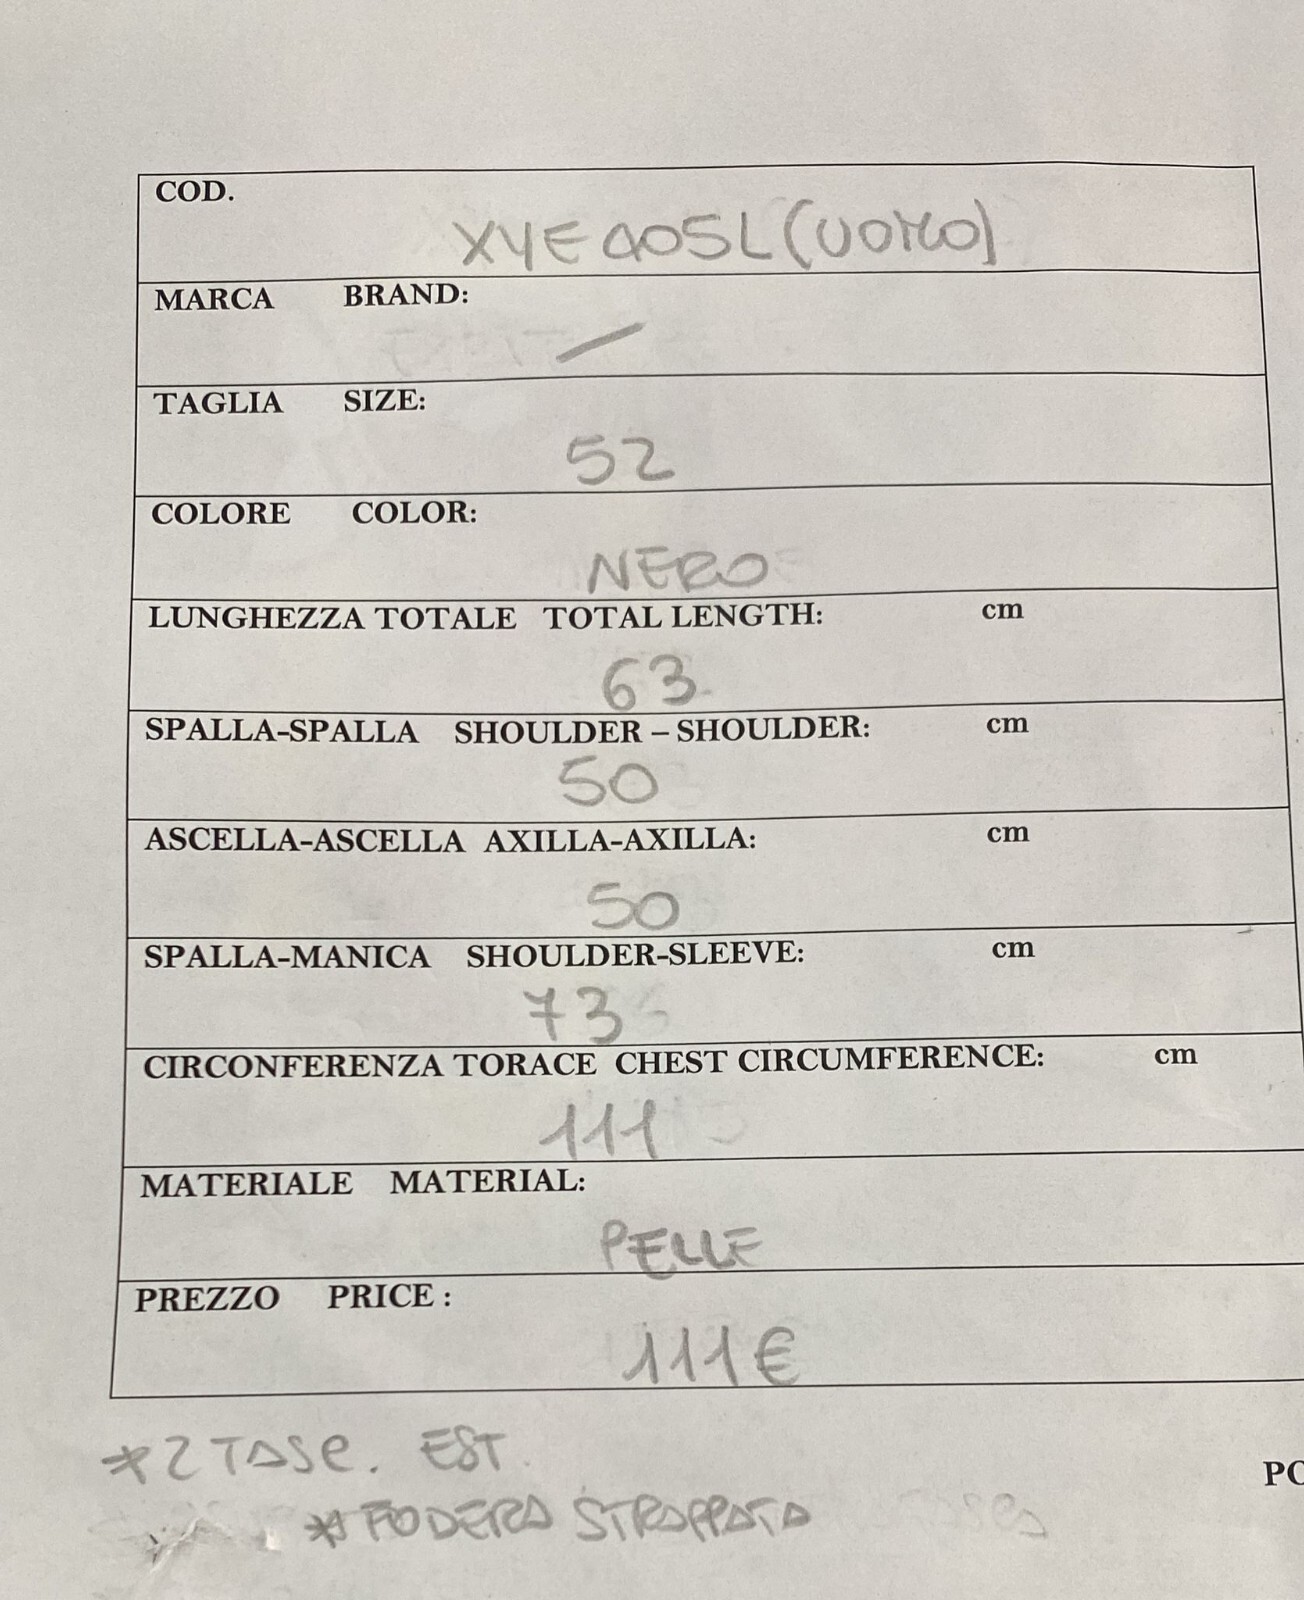 COD.
XYEA05L (UOMO)
MARCA BRAND:
/
TAGLIA SIZE:
52
COLORE COLOR:
NERO
LUNGHEZZA TOTALE TOTAL LENGTH: cm
63
SPALLA-SPALLA SHOULDER – SHOULDER: cm
50
ASCELLA-ASCELLA AXILLA-AXILLA: cm
50
SPALLA-MANICA SHOULDER-SLEEVE: cm
73
CIRCONFERENZA TORACE CHEST CIRCUMFERENCE: cm
111
MATERIALE MATERIAL:
PELLE
PREZZO PRICE :
111€
*2 TASC. EST.
PO
*FODERA STRAPPATA